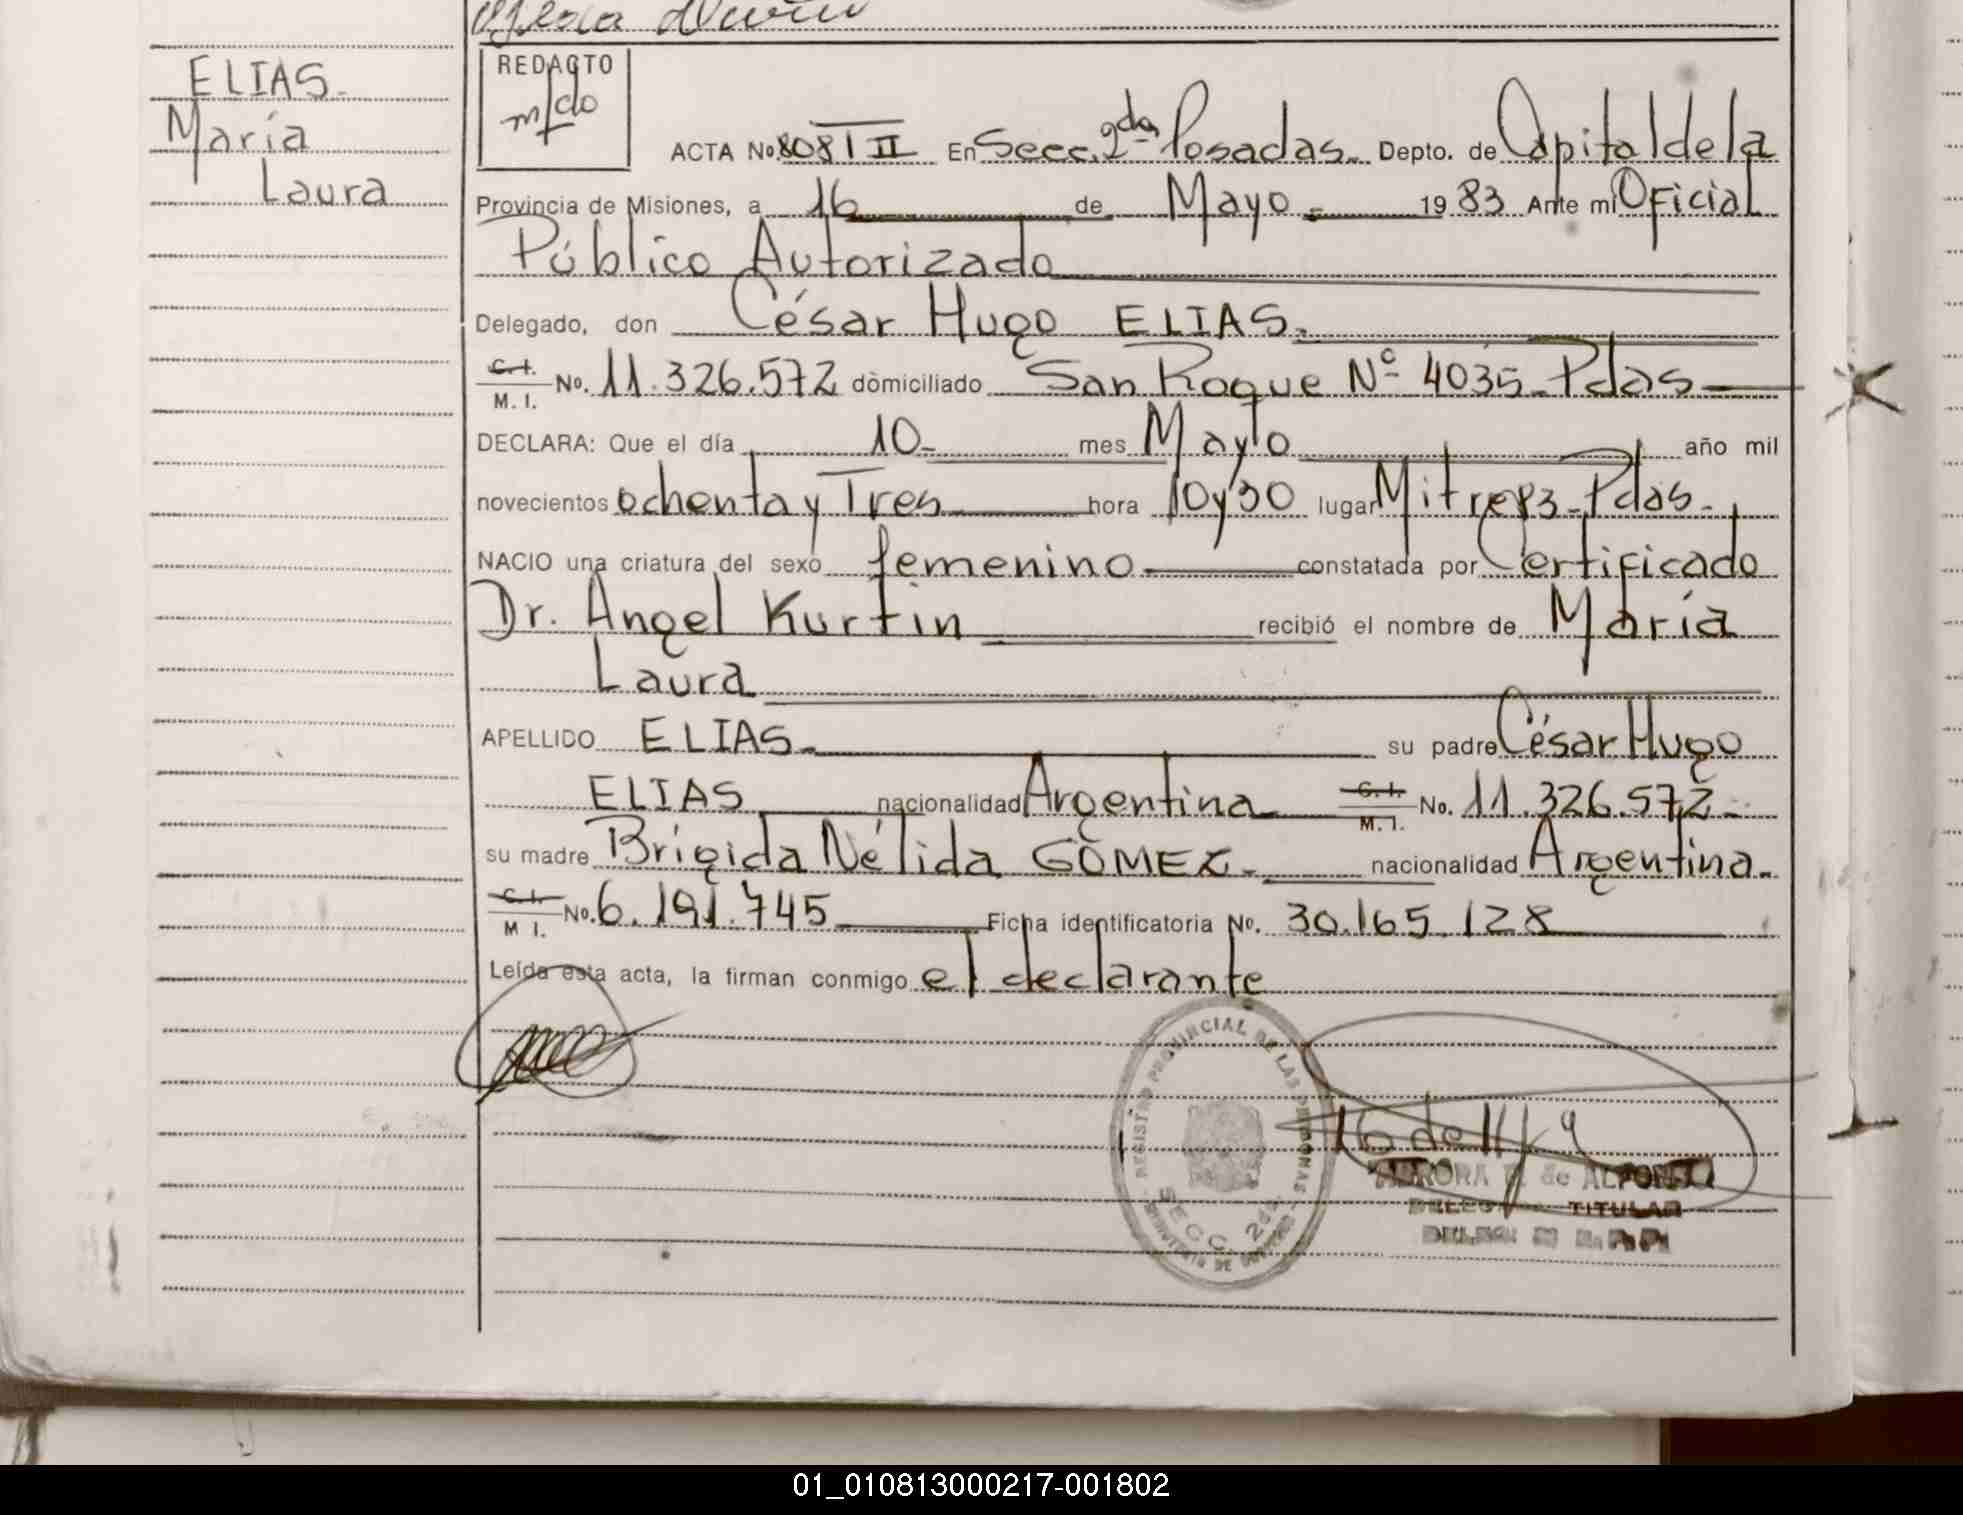 ELIAS.
María
Laura
REDACTO
ACTA No. 808 T II En Secc. 2da Posadas. Depto. de Capital de la
Provincia de Misiones, a 16 de Mayo. 19 83 Ante mi Oficial
Público Autorizado
Delegado, don César Hugo ELIAS.
C.I. M. I. No. 11.326.572 dòmiciliado San Roque Nº 4035-Pdas
DECLARA: Que el día 10 mes Mayo año mil
novecientos ochenta y Tres hora 10 y 30 lugar Mitre 83-Pdas.
NACIO una criatura del sexo femenino constatada por Certificado
Dr. Angel Kurtin recibió el nombre de María
Laura
APELLIDO ELIAS. su padre César Hugo
ELIAS nacionalidad Argentina C.I. M. I. No. 11.326.572-
su madre Brígida Nélida GÓMEZ. nacionalidad Argentina.
C.I. M I. No. 6.191.745 Ficha identificatoria No. 30.165.128
Leída esta acta, la firman conmigo el declarante
REGISTRO PROVINCIAL DE LAS PERSONAS
SECC. 2da.
AURORA de ALFONSO
TITULAR
01_010813000217-001802